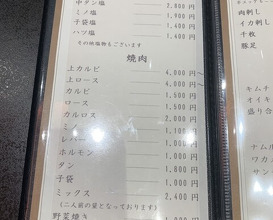 中タン塩 2,800 円
ミノ塩 1,900 円
子袋塩 1,400 円
ハツ塩 1,400 円
その他塩物もございます
焼肉
上カルビ 4,000 円〜
上ロース 4,000 円〜
カルビ 2,000 円
ロース 1,500 円
カルロス 2,000 円
ミノ
レバー 1,000 円
ホルモン 1,000 円
タン 1,800 円
子袋 1,000 円
ミックス 2,400 円
(二人前の量となっております)
野菜焼き 1,000 円
肉刺し
イカ刺し
千枚
豚足
キムチ
オイキ
盛り合
ナムル
ワカメ
サンチ